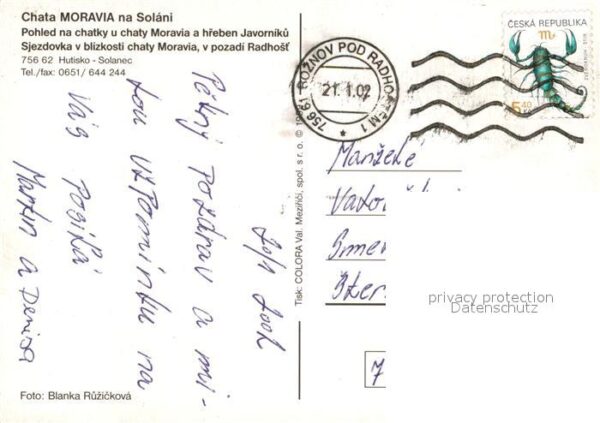 Chata MORAVIA na Soláni
Pohled na chatky u chaty Moravia a hřeben Javorníků
Sjezdovka v blízkosti chaty Moravia, v pozadí Radhošť
756 62 Hutisko - Solanec
Tel./fax: 0651/ 644 244
Pěkný pozdrav a mi-
lou vzpomínku na
Vás posílá
Martin a Denisa
Foto: Blanka Růžičková
Tisk: COLORA Val. Meziříčí, spol. s r. o.
756 61 ROŽNOV POD RADHOŠTĚM 1
21. 1. 02
ČESKÁ REPUBLIKA
5.40
Manželé
7
privacy protection
Datenschutz